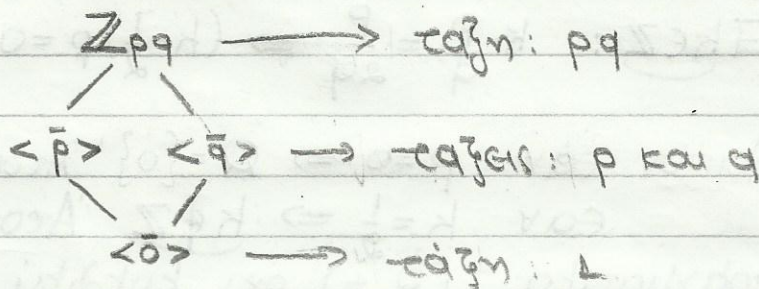 ℤpq → τάξη: pq
<p̄> <q̄> → τάξεις: p και q
<0̄> → τάξη: 1